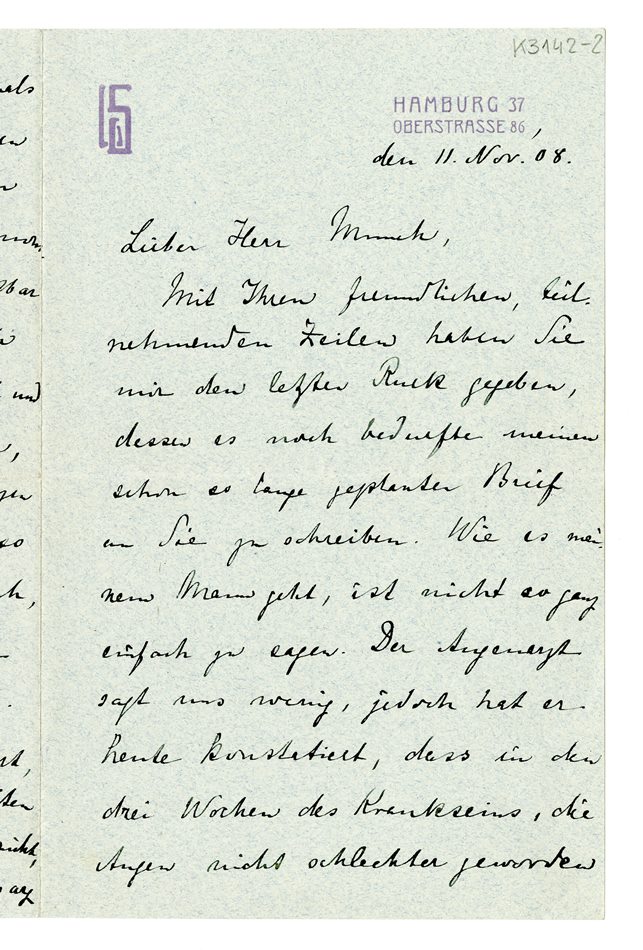 K3142-2
HAMBURG 37
OBERSTRASSE 86,
den 11. Nov. 08.
Lieber Herr Munch,
Mit Ihren freundlichen, teil-
nehmenden Zeilen haben Sie
mir den letzten Ruck gegeben,
dessen es noch bedurfte meinen
schon so lange geplanten Brief
an Sie zu schreiben. Wie es mei-
nem Mann geht, ist nicht so ganz
einfach zu sagen. Der Augenarzt
sagt uns wenig, jedoch hat er
heute konstatiert, dass in den
drei Wochen des Krankseins, die
Augen nicht schlechter geworden